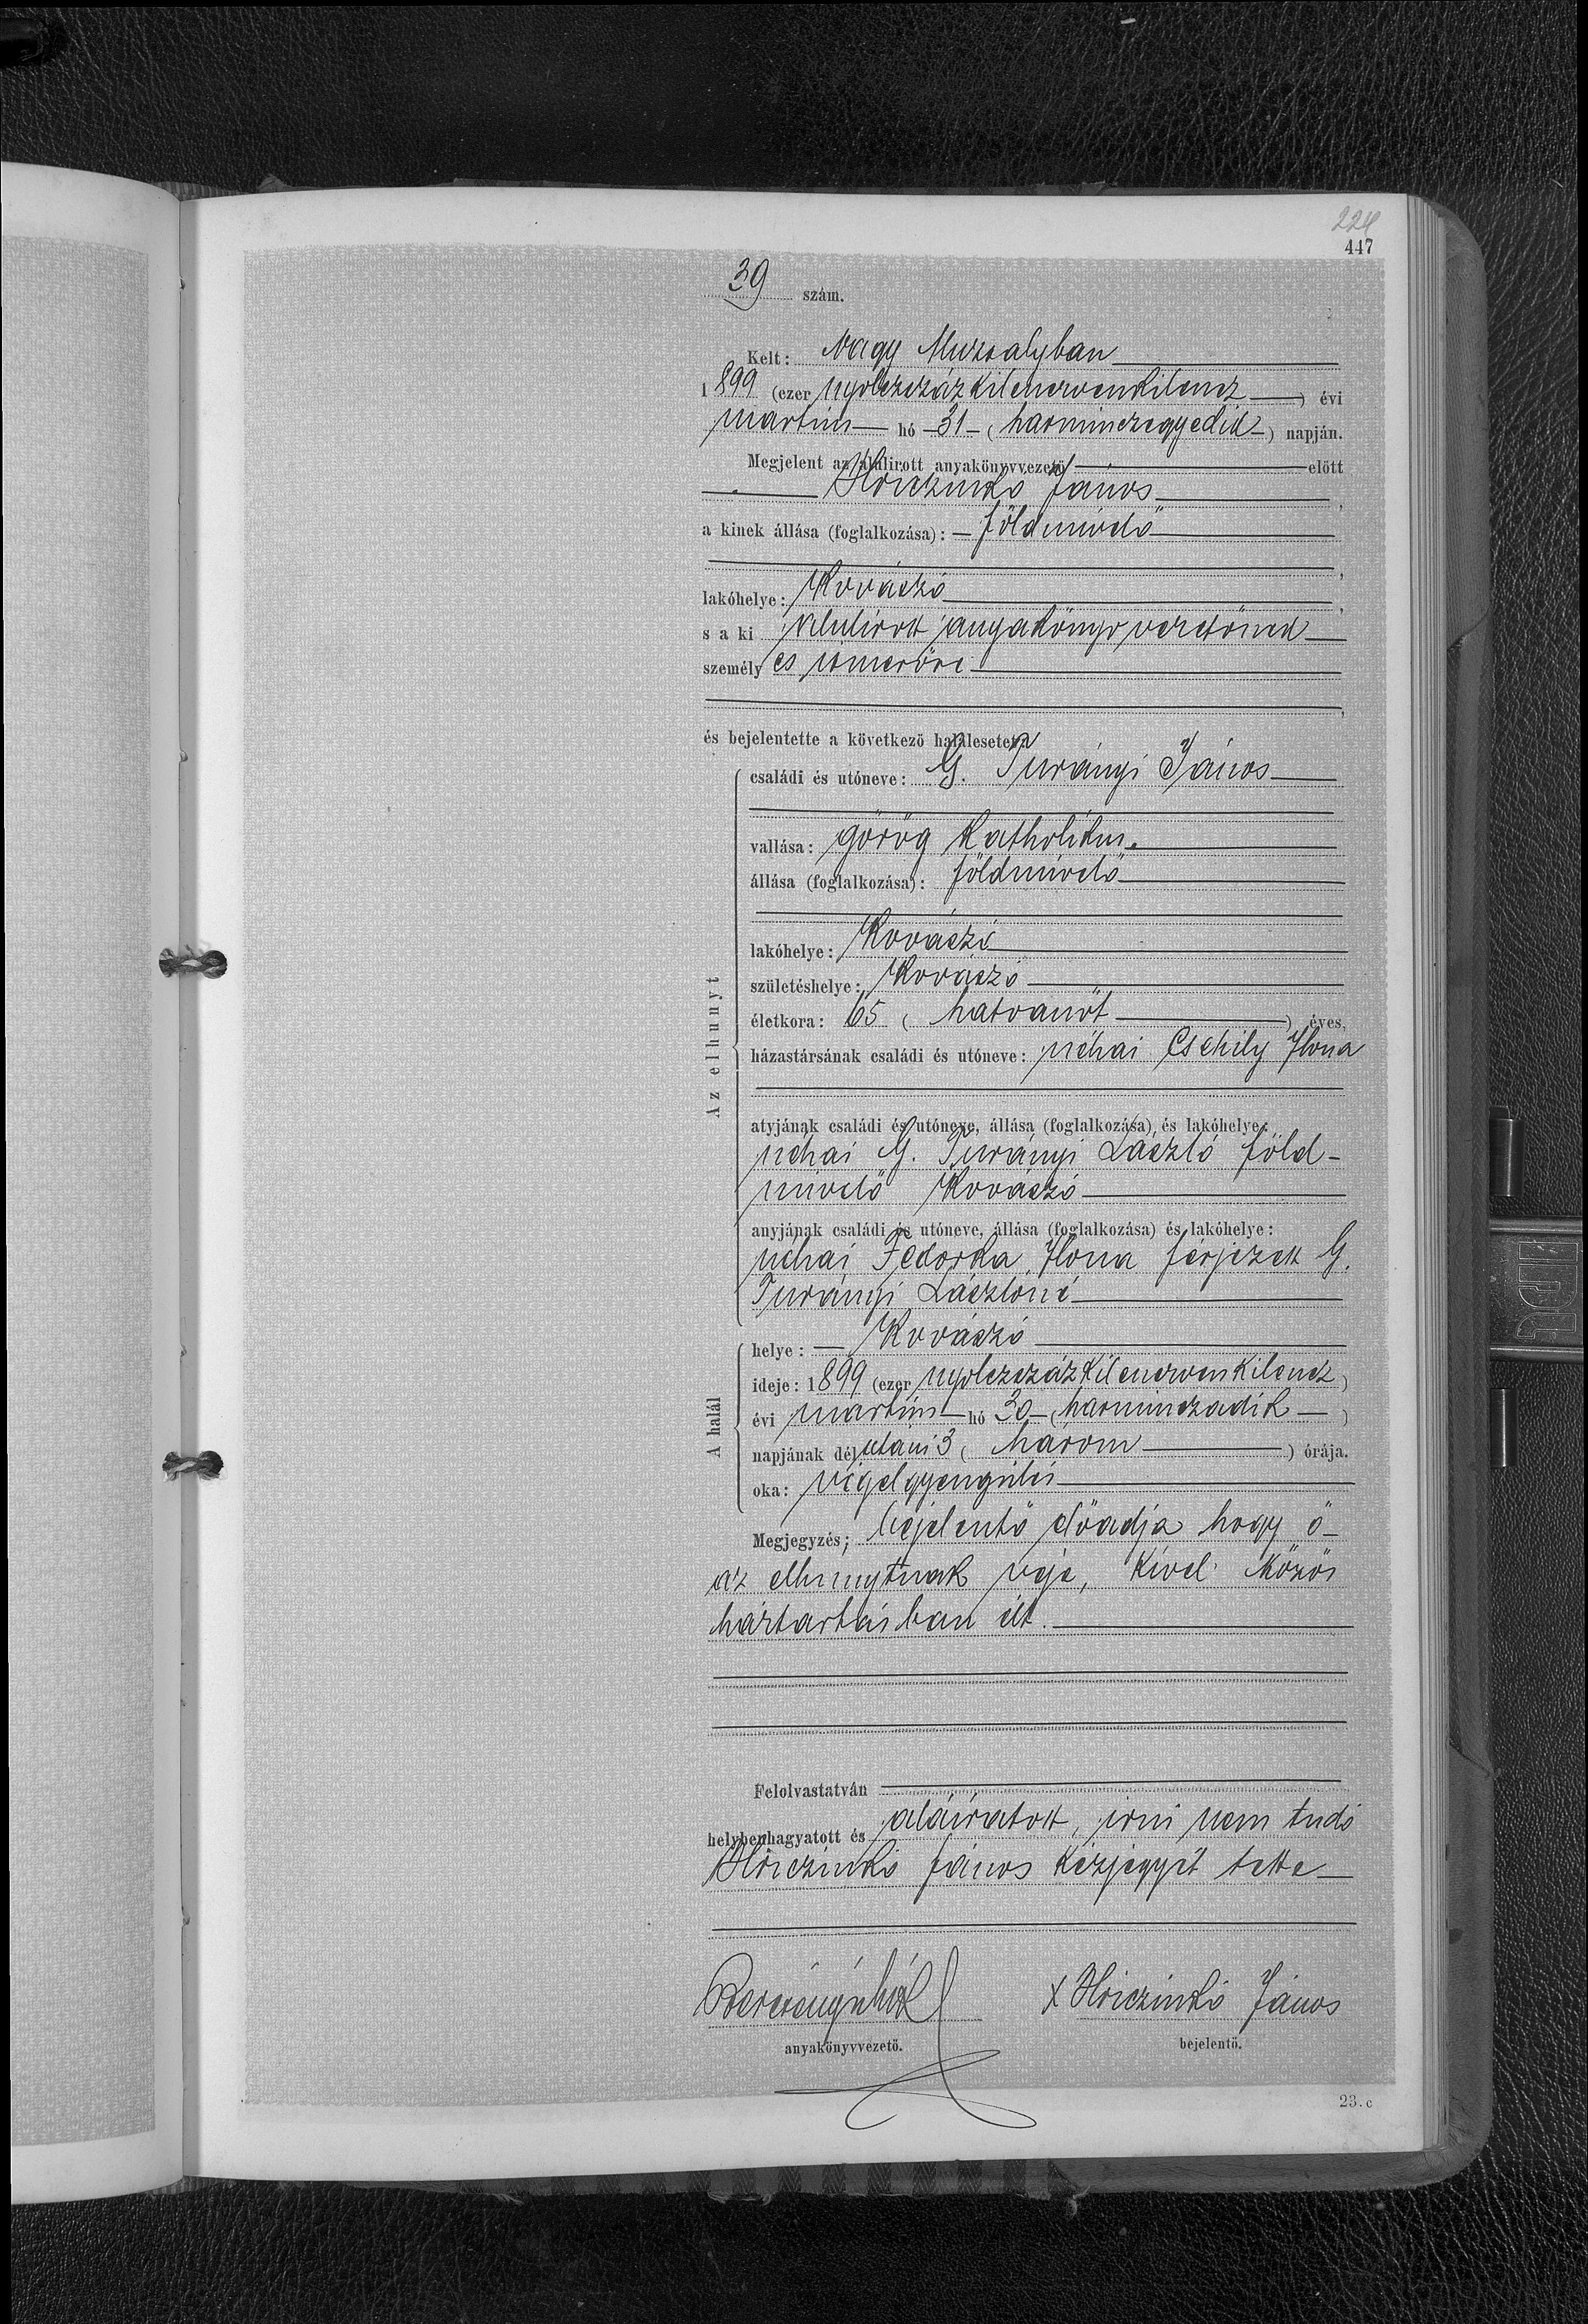 224
447
39 szám.
Kelt: Nagy Muzsalyban
1899 (ezer nyolczszázkilenczvenkilencz) évi
martius hó 31 (harminczegyedik) napján.
Megjelent az alulirott anyakönyvvezető előtt
János,
a kinek állása (foglalkozása): földmivelő
lakóhelye: Kovászó,
s a ki alulirott anyakönyvvezetőnek
személyes ismerőse
és bejelentette a következő halálesetet:
Az elhunyt
családi és utóneve: G. Turányi János
vallása: görög katholikus.
állása (foglalkozása): földmivelő
lakóhelye: Kovászó
születéshelye: Kovászó
életkora: 65 (hatvanöt) éves,
házastársának családi és utóneve: néhai Csehily Ilona
atyjának családi és utóneve, állása (foglalkozása) és lakóhelye:
néhai G. Turányi László föld-
mivelő Kovászó
anyjának családi és utóneve, állása (foglalkozása) és lakóhelye:
néhai Fedorka Ilona férjezett G.
Turányi Lászlóné
A halál
helye: Kovászó
ideje: 1899 (ezer nyolczszázkilenczvenkilencz)
évi martius hó 30 (harminczadik)
napjának délutani 3 (három) órája.
oka: végelgyengülés
Megjegyzés; bejelentő előadja hogy ő
az elhunytnak veje, kivel közös
háztartásban élt.
Felolvastatván
helybenhagyatott és aláiratott, irni nem tudó
János kézjegyét tette
X János
anyakönyvvezető. bejelentő.
23.c